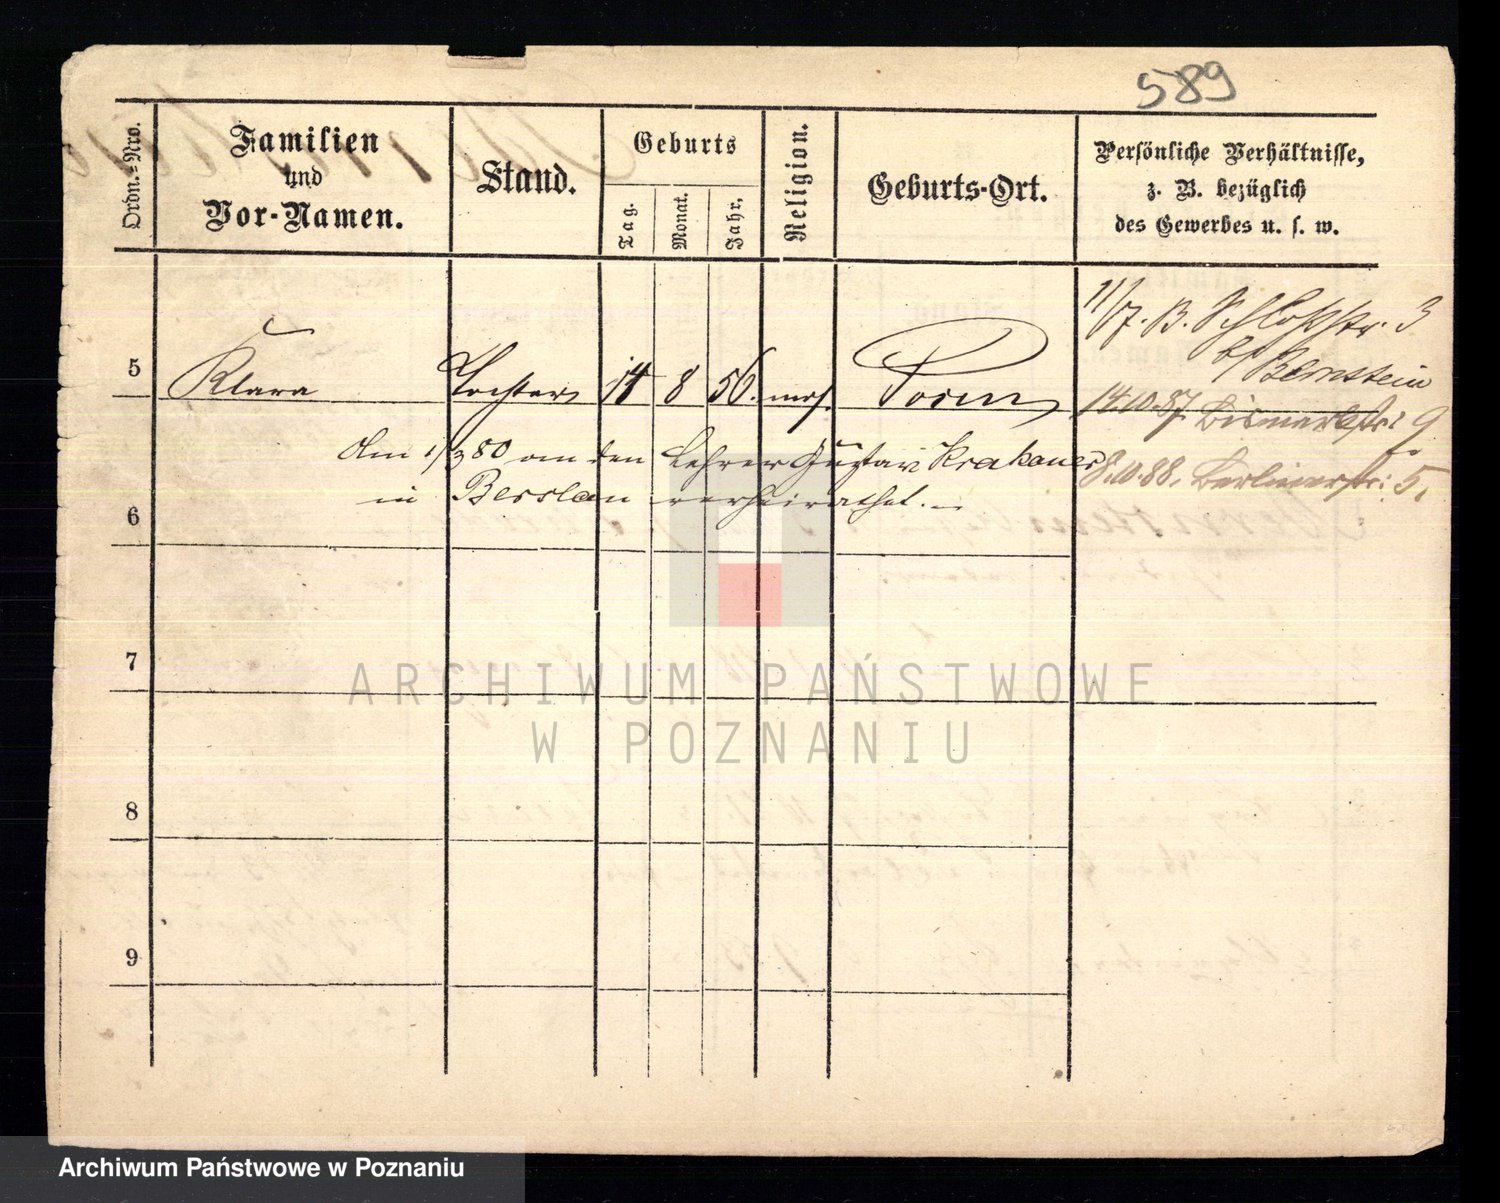 589
Ordn.-Nro.
Familien
und
Vor-Namen.
Stand.
Geburts
Tag.
Monat.
Jahr.
Religion.
Geburts-Ort.
Persönliche Verhältnisse,
z. B. bezüglich
des Gewerbes u. s. w.
11/7. B. Schloßstr. 3
b/ Bernstein
5 Klara Tochter 14 8 56. mos. Posen
14.10.87. Bismarkstr: 9
Am 1/3 80 an den Lehrer Gustav Krakauer
8.10.88. Berlinerstr: 5.
in Breslau verheirathet.
6
7
ARCHIWUM PAŃSTWOWE
W POZNANIU
8
9
Archiwum Państwowe w Poznaniu